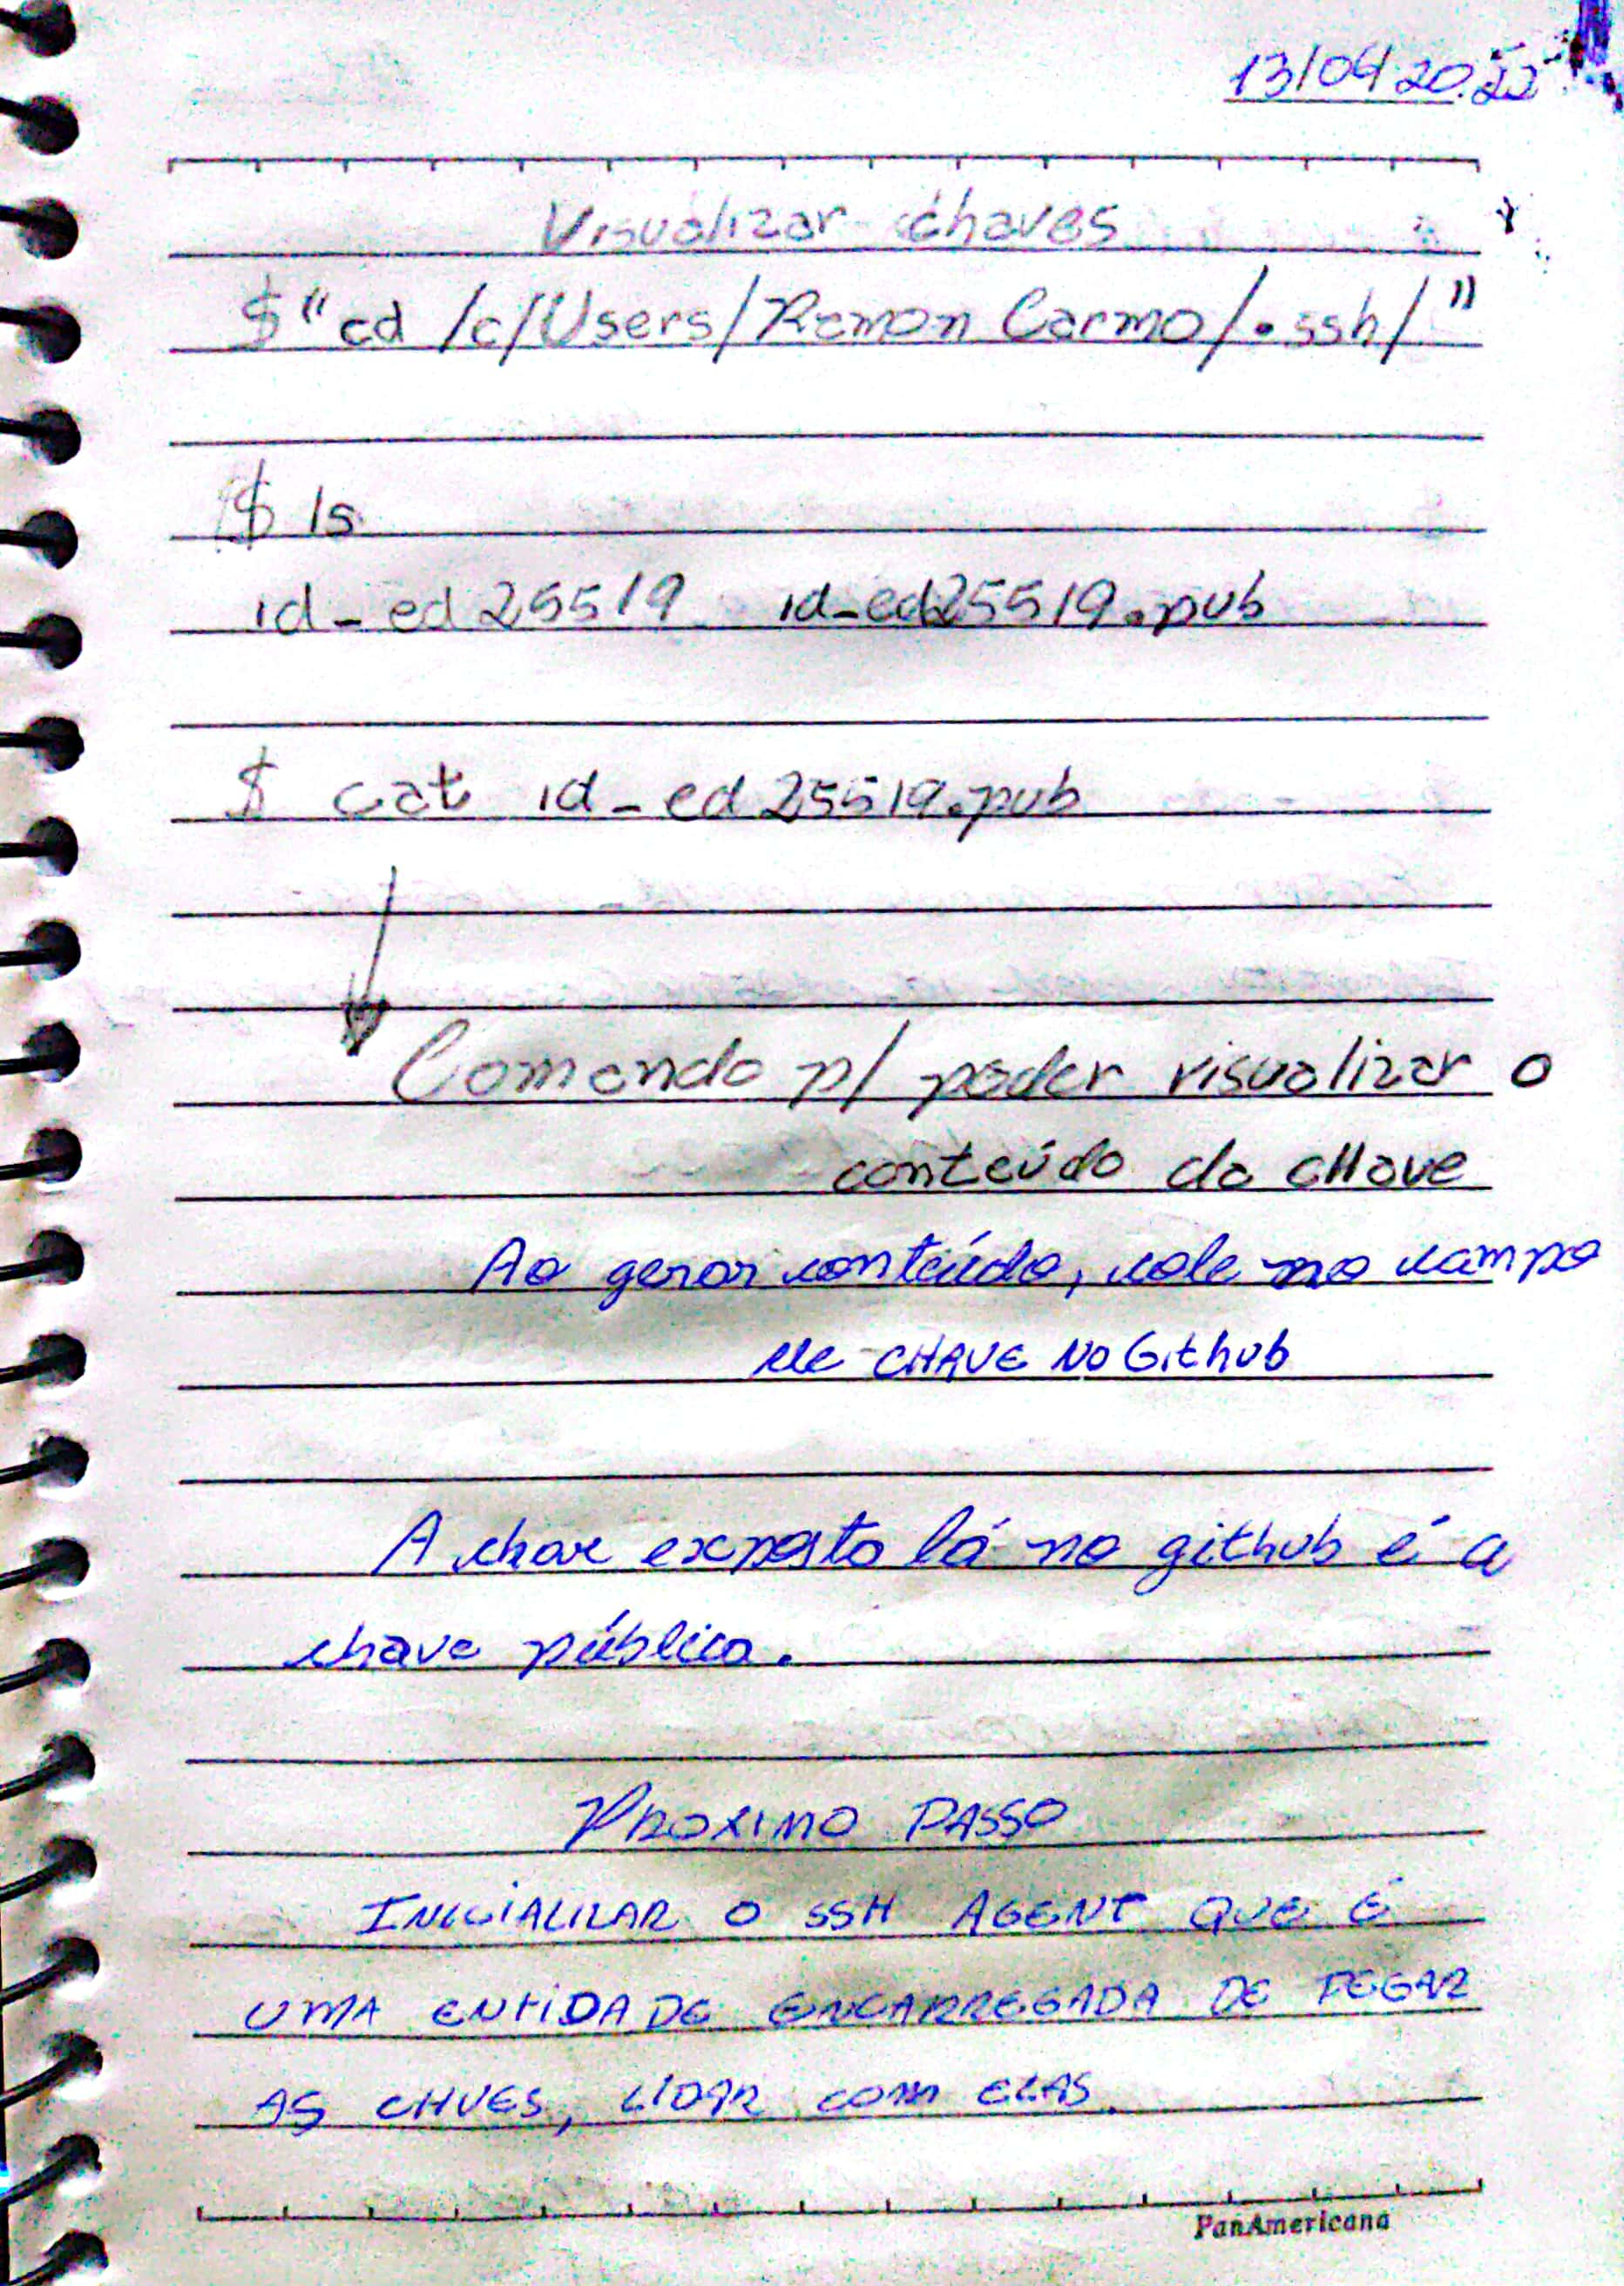 13/04 20.22
Visualizar chaves
$ "cd /c/Users/Ramon Carmo/.ssh/"
$ ls
id_ed25519 id_ed25519.pub
$ cat id_ed25519.pub
Comando p/ poder visualizar o
conteúdo da cHave
Ao gerar conteúdo, cole no campo
de CHAVE NO GitHub
A chave exposta lá no github é a
chave pública.
PROXIMO PASSO
INICIALIZAR O SSH AGENT QUE É
UMA ENTIDADE ENCARREGADA DE PEGAR
AS CHVES, LIDAR COM ELAS.
PanAmericana